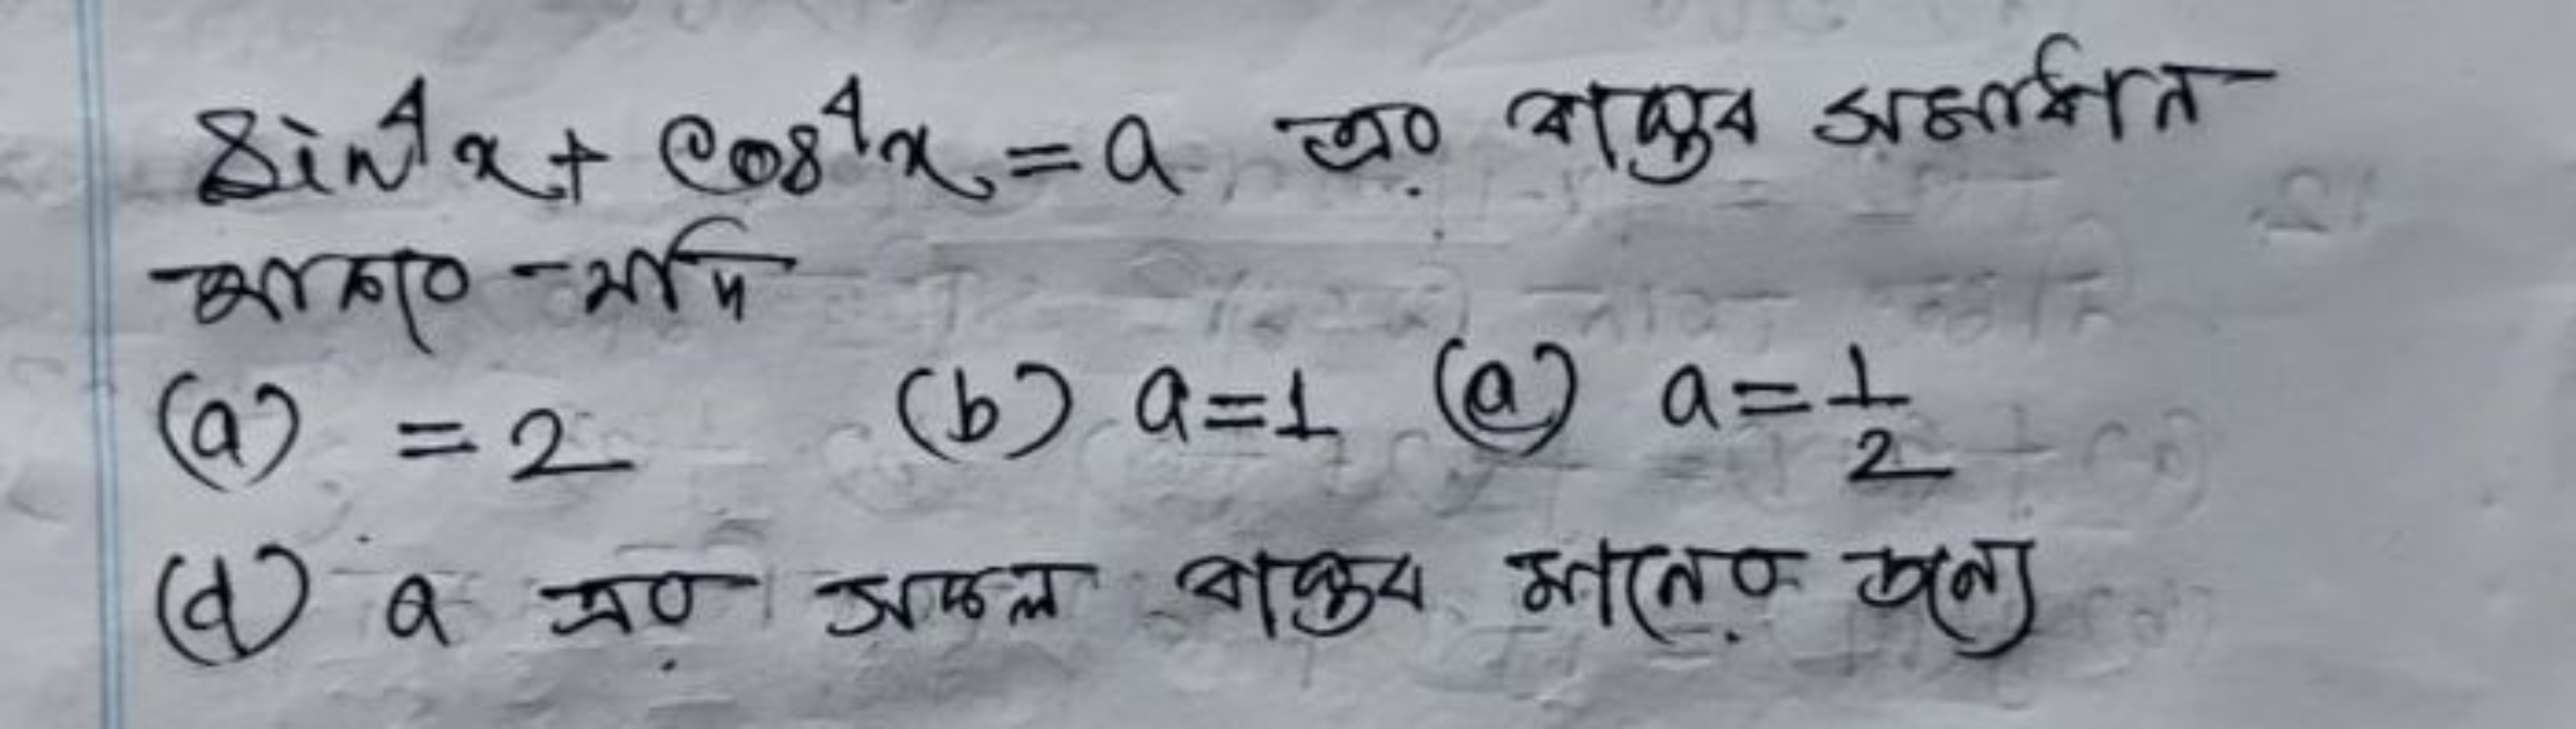 sin⁴x + cos⁴x = a এর বাস্তব সমাধান
থাকবে যদি
(a) = 2 (b) a=1 (a) a=1/2
(d) a এর সকল বাস্তব মানের জন্য